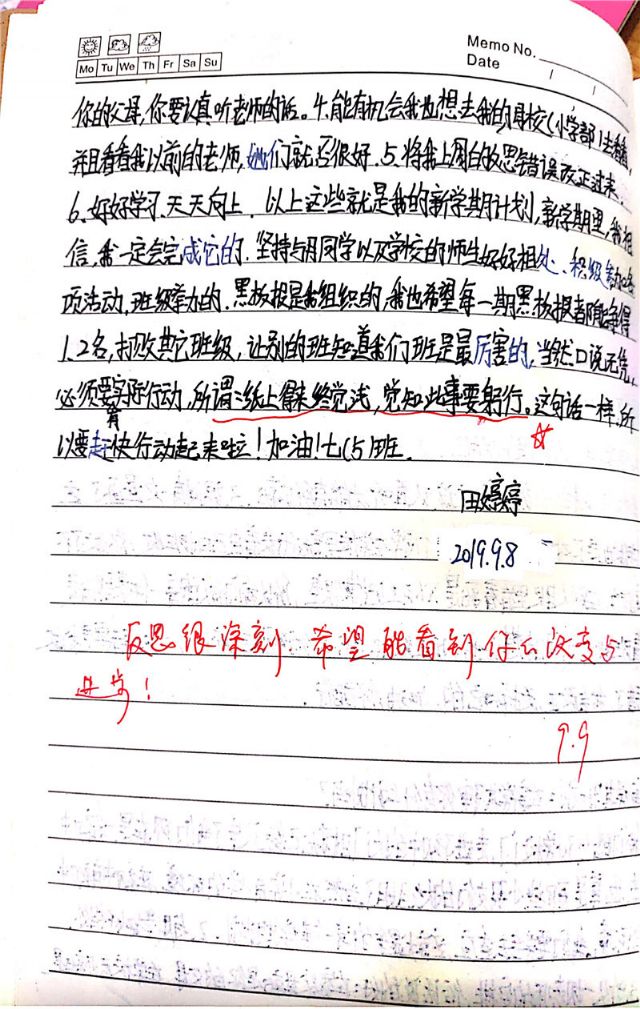 Memo No.
Mo Tu We Th Fr Sa Su
Date / /
你的父母,你要认真听老师的话。4.能有机会我也想去我的母校(小学部)去
并且看看我以前的老师,她们就否很好.5.将我上周的反思错误改正过来.
6.好好学习.天天向上.以上这些就是我的新学期计划,新学期望,我相
信,我一定会完成它的.坚持与用同学以及学校的师生好好相处、积极参加各
项活动,班级举办的.黑板报是我组织的,我也希望每一期黑板报都能争得
1.2名,打败其它班级,让别的班知道我们班是最厉害的,当然口说无凭,
必须要有实际行动,所谓:纸上得来终觉浅,觉知此事要躬行。这句话一样,所
以要赶快行动起来啦!加油!七(5)班.
田婷婷
2019.9.8
反思很深刻.希望能看到你的改变与
进步!
9.9